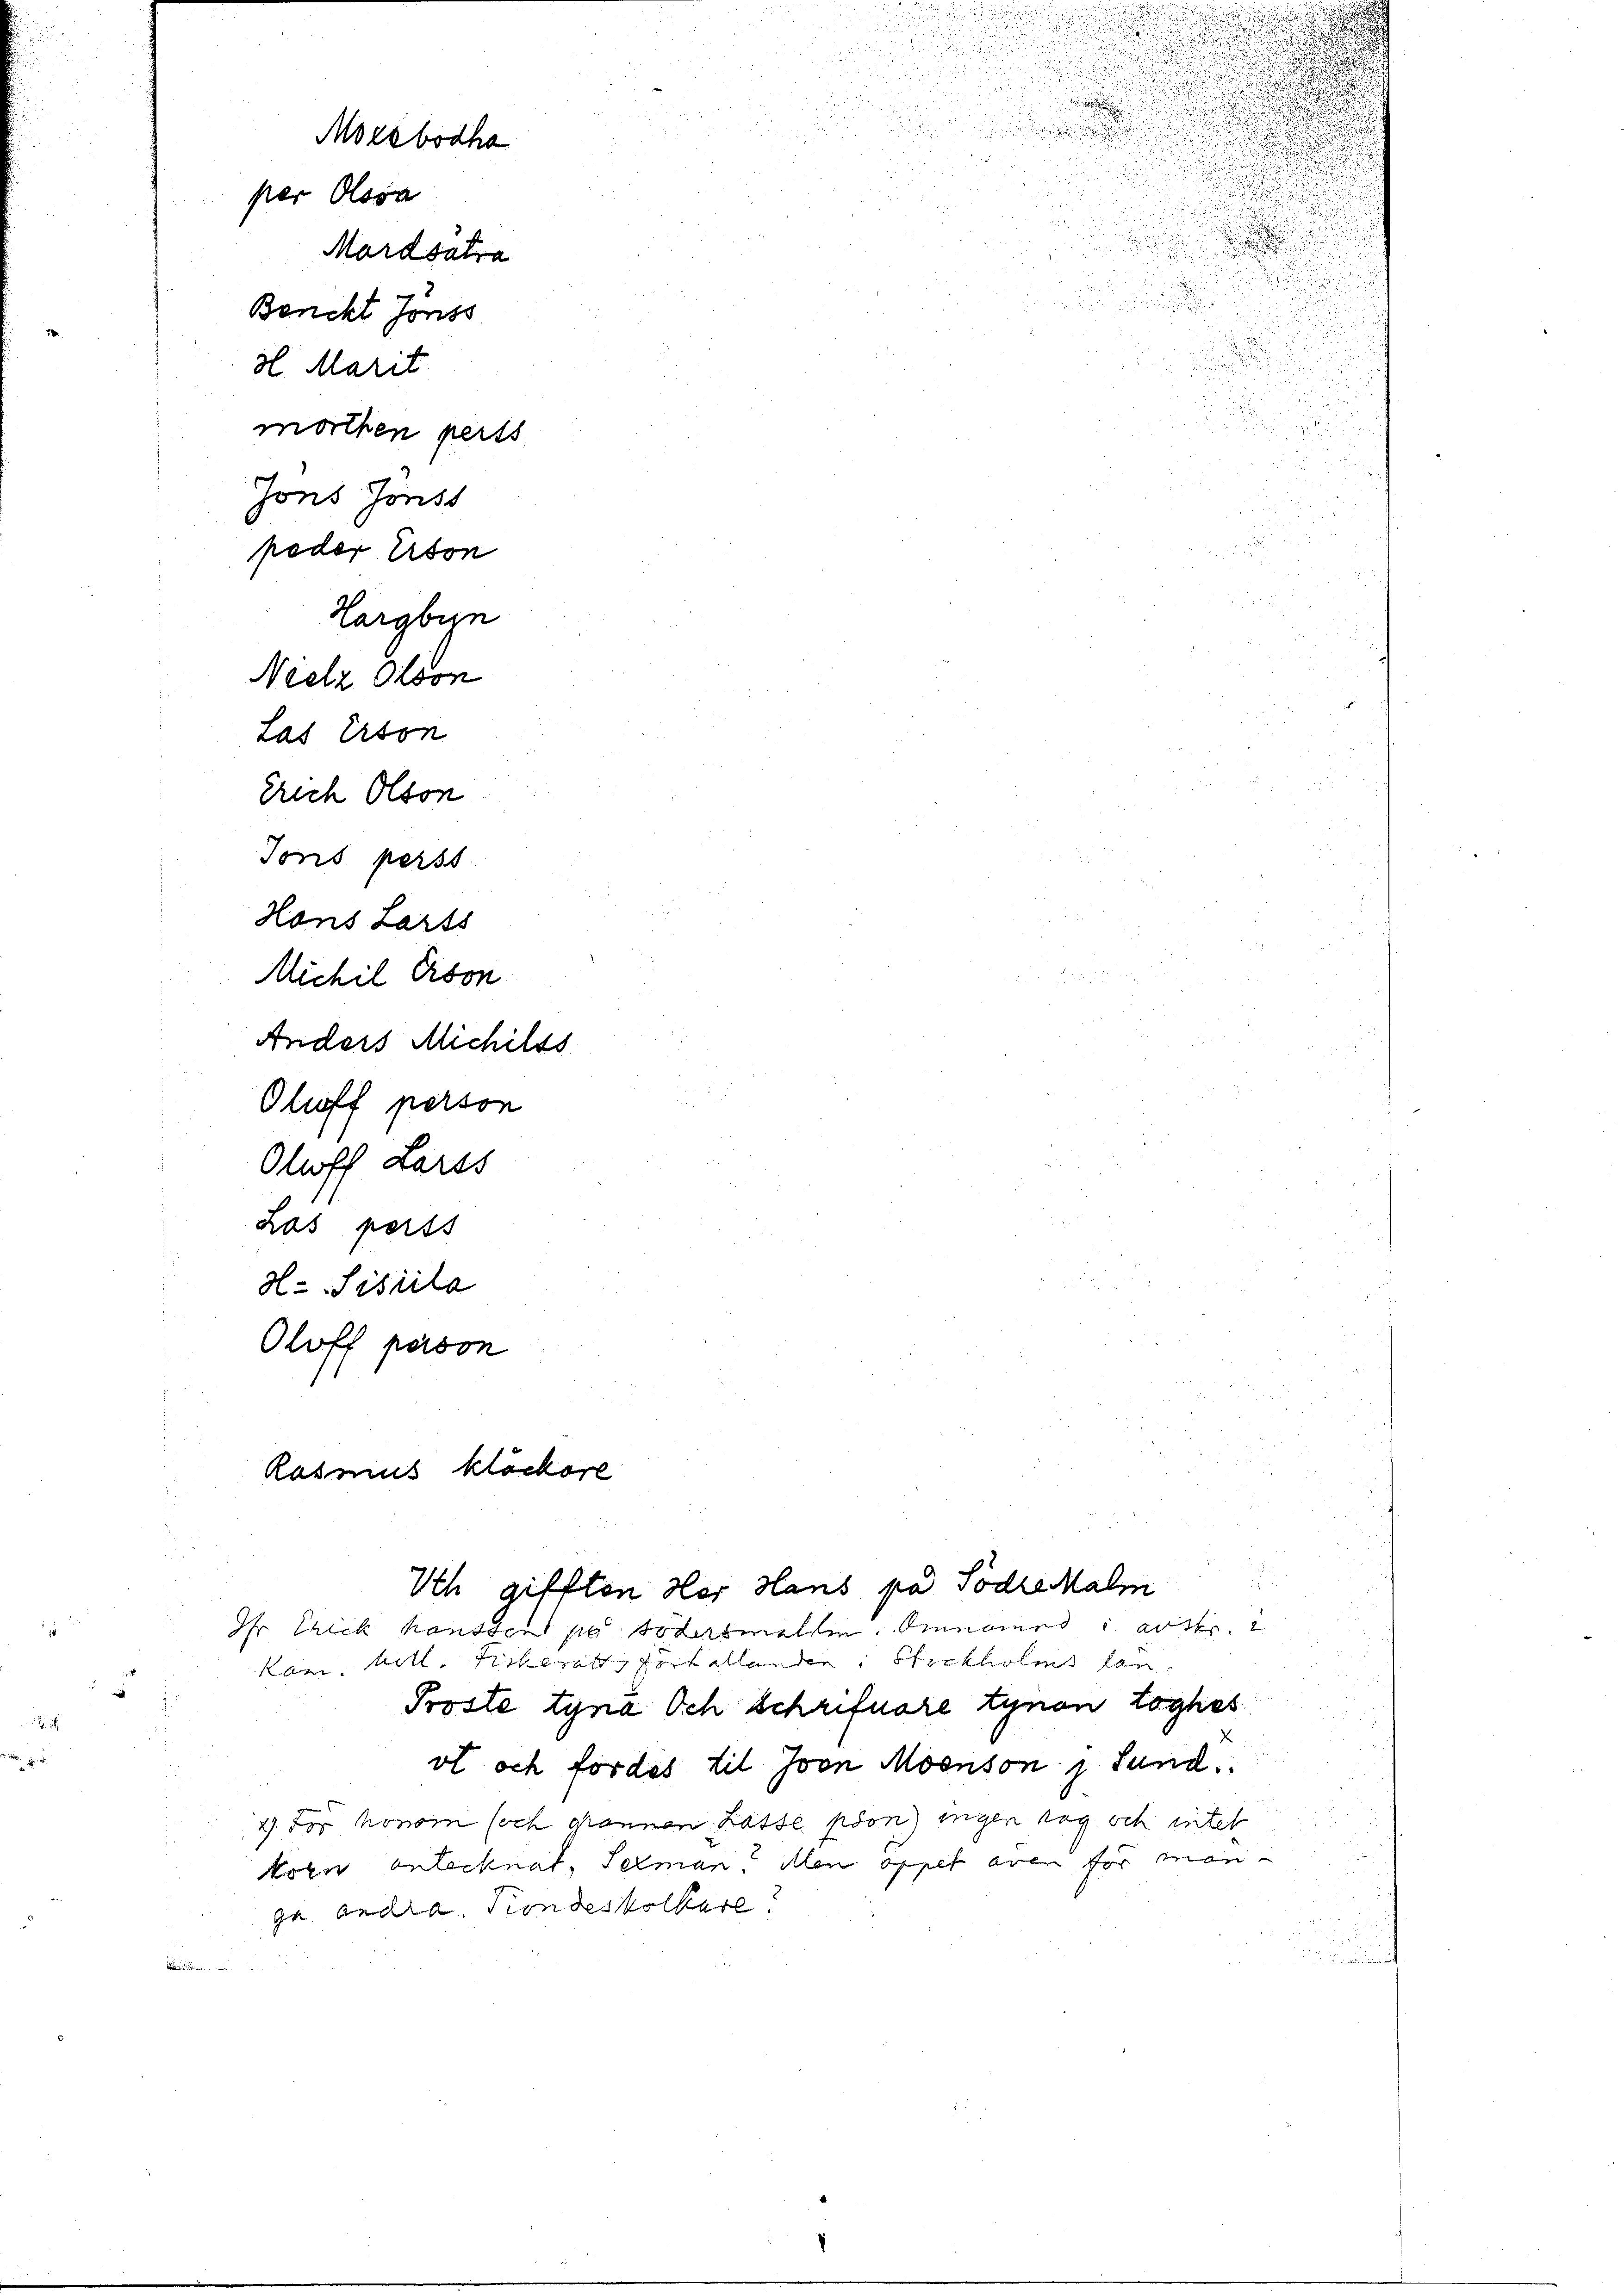 Morabodha
per Olsõn
Mardsätra
Benckt Jönss
H Marit
morthen perss
Jöns Jönss
peder Erson
Hargbyn
Nielz Olson
Las Erson
Erich Olson
Jons perss
Hans Larss
Michil Erson
Anders Michilss
Oluff person
Oluff Larss
Las perss
H= Sisiila
Oloff person
Rasmus klöckare
Vth gifften Her Hans på Södre Malm
Hr Erick hanssens på södersmallm. Omnämnd i avskr. i
Kam. koll. Fiskerätts förhållanden i Stockholms län.
Proste tyna Och Schrifuare tynan toghes
vt och fördes til Joon Moenson j Sund. x
x) För honom (och grannen Lasse pson) ingen rag och intet
korn antecknat. Sexman? Men öppet även för mån-
ga andra. Tiondeskolkare?